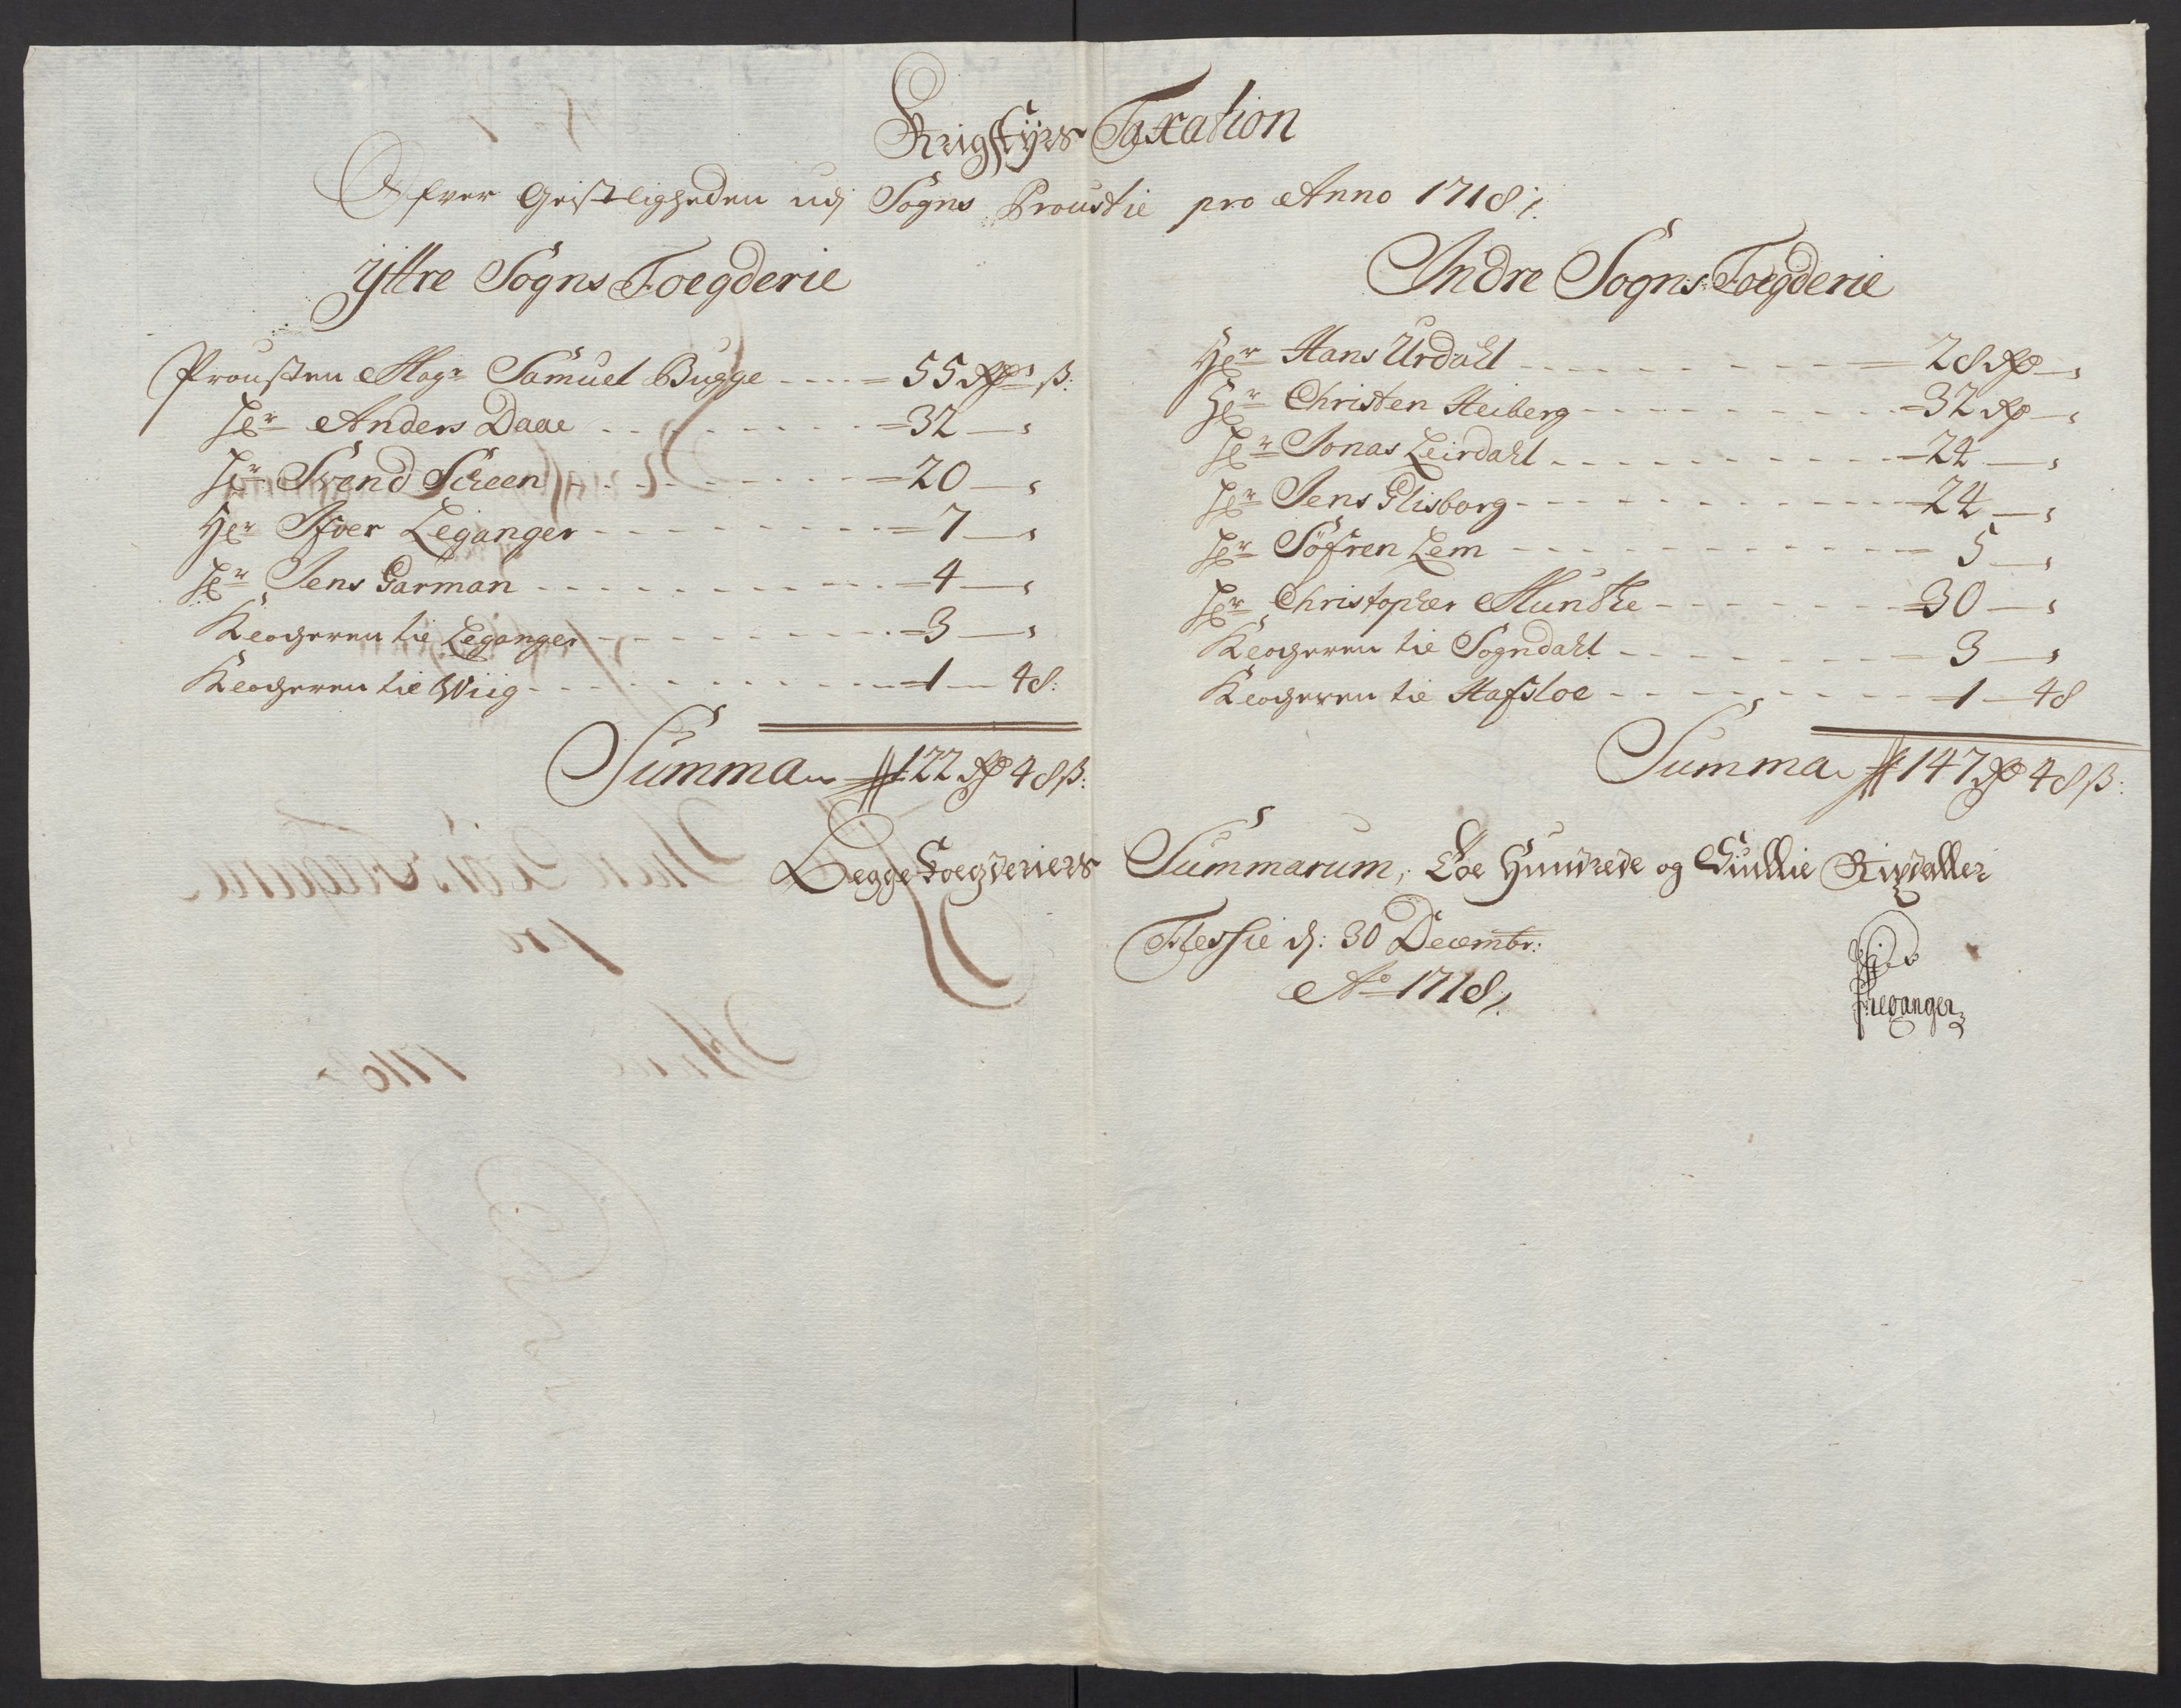 Krigstÿrs Taxation
Ofver Geistligheden udj Sogns Proustie pro Anno 1718 ;/.
Ÿttre Sogns Foegderie
Prousten Mag.r Samuel Bugge - - - - = 55 Rd.r ß:
H.r Anders Daae - - - - - - = 32 — „
H.r Svend Scheen - - - - - - = 20 — „
H.r Ifver Leganger - - - - - - = 7 — „
H.r Jens Garman - - - - - - = 4 — „
Klocheren till Leganger - - - - - - = 3 — „
Klocheren till Wiig - - - - - - = 1 — 48:
Summa = 122 Rd 48 ß:
Indre Sogns Foegderie
H.r Hans Urdahl - - - - - - = 28 Rd — „
H.r Christen Heiberg - - - - - - = 32 Rd — „
H.r Jonas Leirdahl - - - - - - = 24 — „
H.r Jens Olisborg - - - - - - = 24 — „
H.r Söfren Lem - - - - - - = 5 — „
H.r Christopher Munthe - - - - - - = 30 — „
Klocheren till Sogndahl - - - - - - = 3 — „
Klocheren till Hafsloe - - - - - - = 1 — 48
Summa = 147 Rd 48 ß:
Begge Foegderiers Summarum, Toe Hundrede og Rixdaller
d: 30 Decembr:
Ao 1718